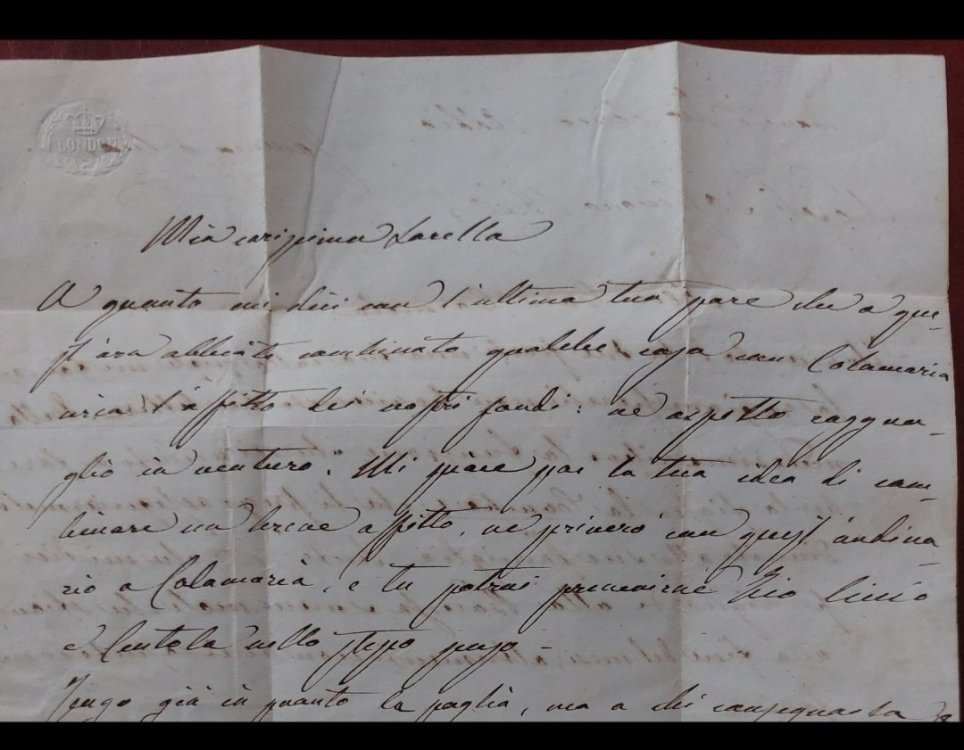 LONDON
Mia carissima Sorella
A quanto mi dici con l'ultima tua pare che a que-
st'ora abbiate combinato qualche cosa con Colamaria
circa l'affitto dei nostri fondi: ne aspetto raggua-
glio in venturo. Mi piace poi la tua idea di com-
binare un breve affitto, ne con quest'ordina
rio a Colamaria, e tu potrai prevenirne Zio
e nello stesso
già in quanto la paglia, ma a chi consegnarla